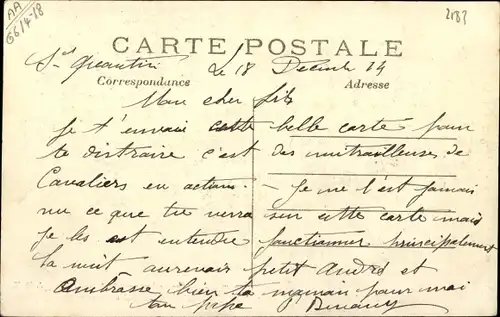 AA
G6/4-18
2183
CARTE POSTALE
St Quentin Le 18 Decemb 14
Correspondance
Adresse
Mon cher fils
Je t'envoie cette belle carte pour
te distraire c'est des mitrailleuse de
Cavaliers en actions. Je ne l'est jamais
vu ce que tu verra sur cette carte mais
Je les est entendre fonctionner principalement
la nuit au revoir petit André et
Ambrasse bien ta maman pour moi
ton papa